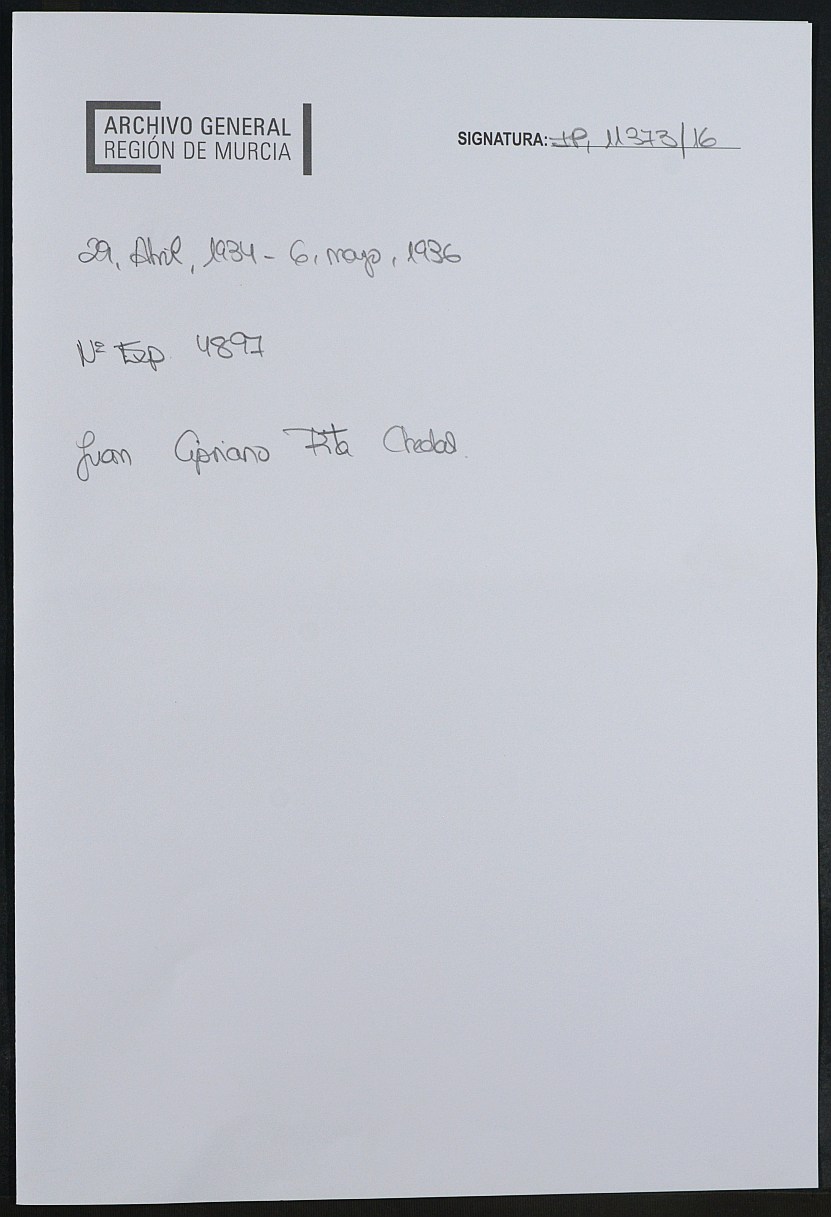 ARCHIVO GENERAL
REGIÓN DE MURCIA
SIGNATURA: JP, 11373/16
29, Abril, 1934 - 6, mayo, 1936
Nº Exp 4897
Juan Cipriano Pita